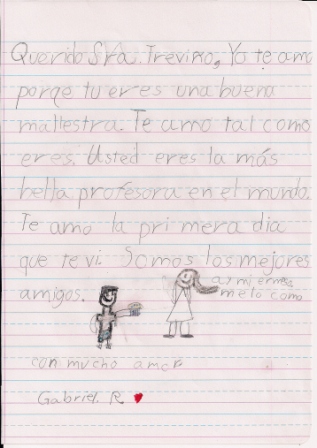 Querido Sra. Treviño, Yo te am
porqe tu eres una buena
mallestra. Te amo tal como
eres. Usted eres la más
bella profesora en el mundo.
Te amo la primera dia
que te vi. Somos los mejores
amigos.
me lo como
con mucho amor
Gabriel. R.